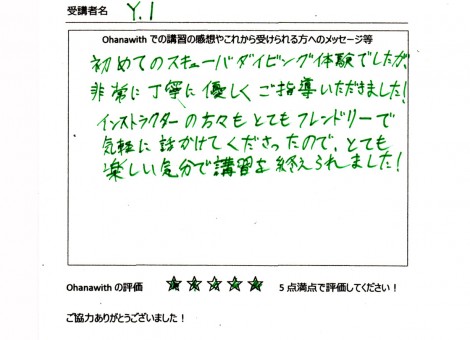 受講者名 Y.I
Ohanawith での講習の感想やこれから受けられる方へのメッセージ等
初めてのスキューバダイビング体験でしたが、
非常に丁寧に優しくご指導いただきました!
インストラクターの方々もとてもフレンドリーで
気軽に話かけてくださったので、とても
楽しい気分で講習を終えられました!
Ohanawith の評価 ☆☆☆☆☆ 5 点満点で評価してください!
ご協力ありがとうございました!